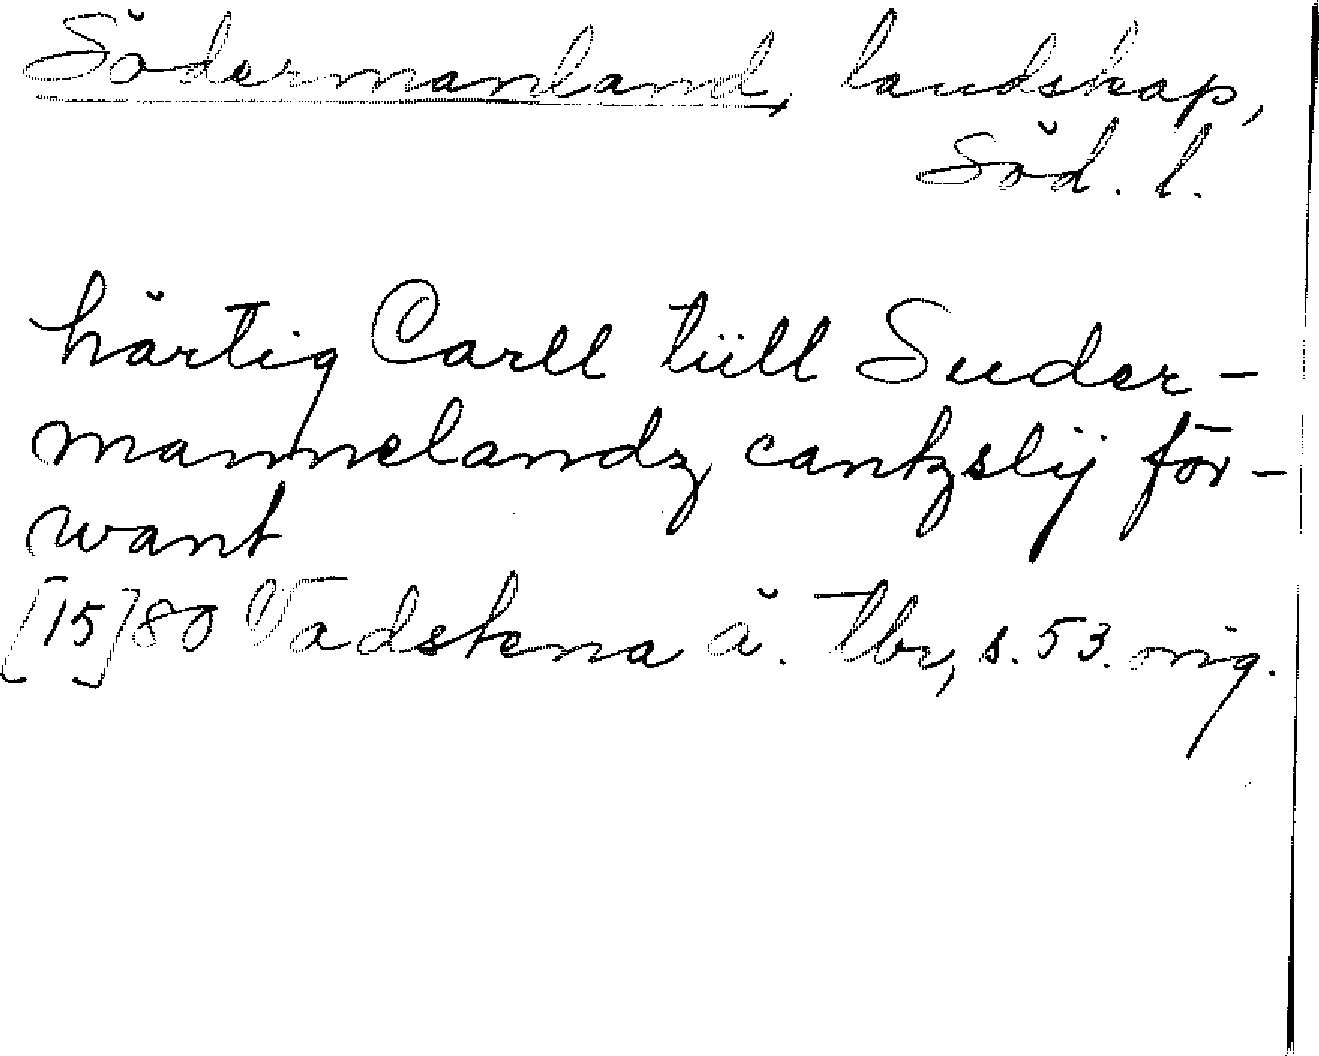 Södermanland, landskap,
Söd. l.
härtig Carll tiill Suder-
mannelandz cantzslij för-
want
[15]80 Vadstena ä. Tbr, s. 53. orig.